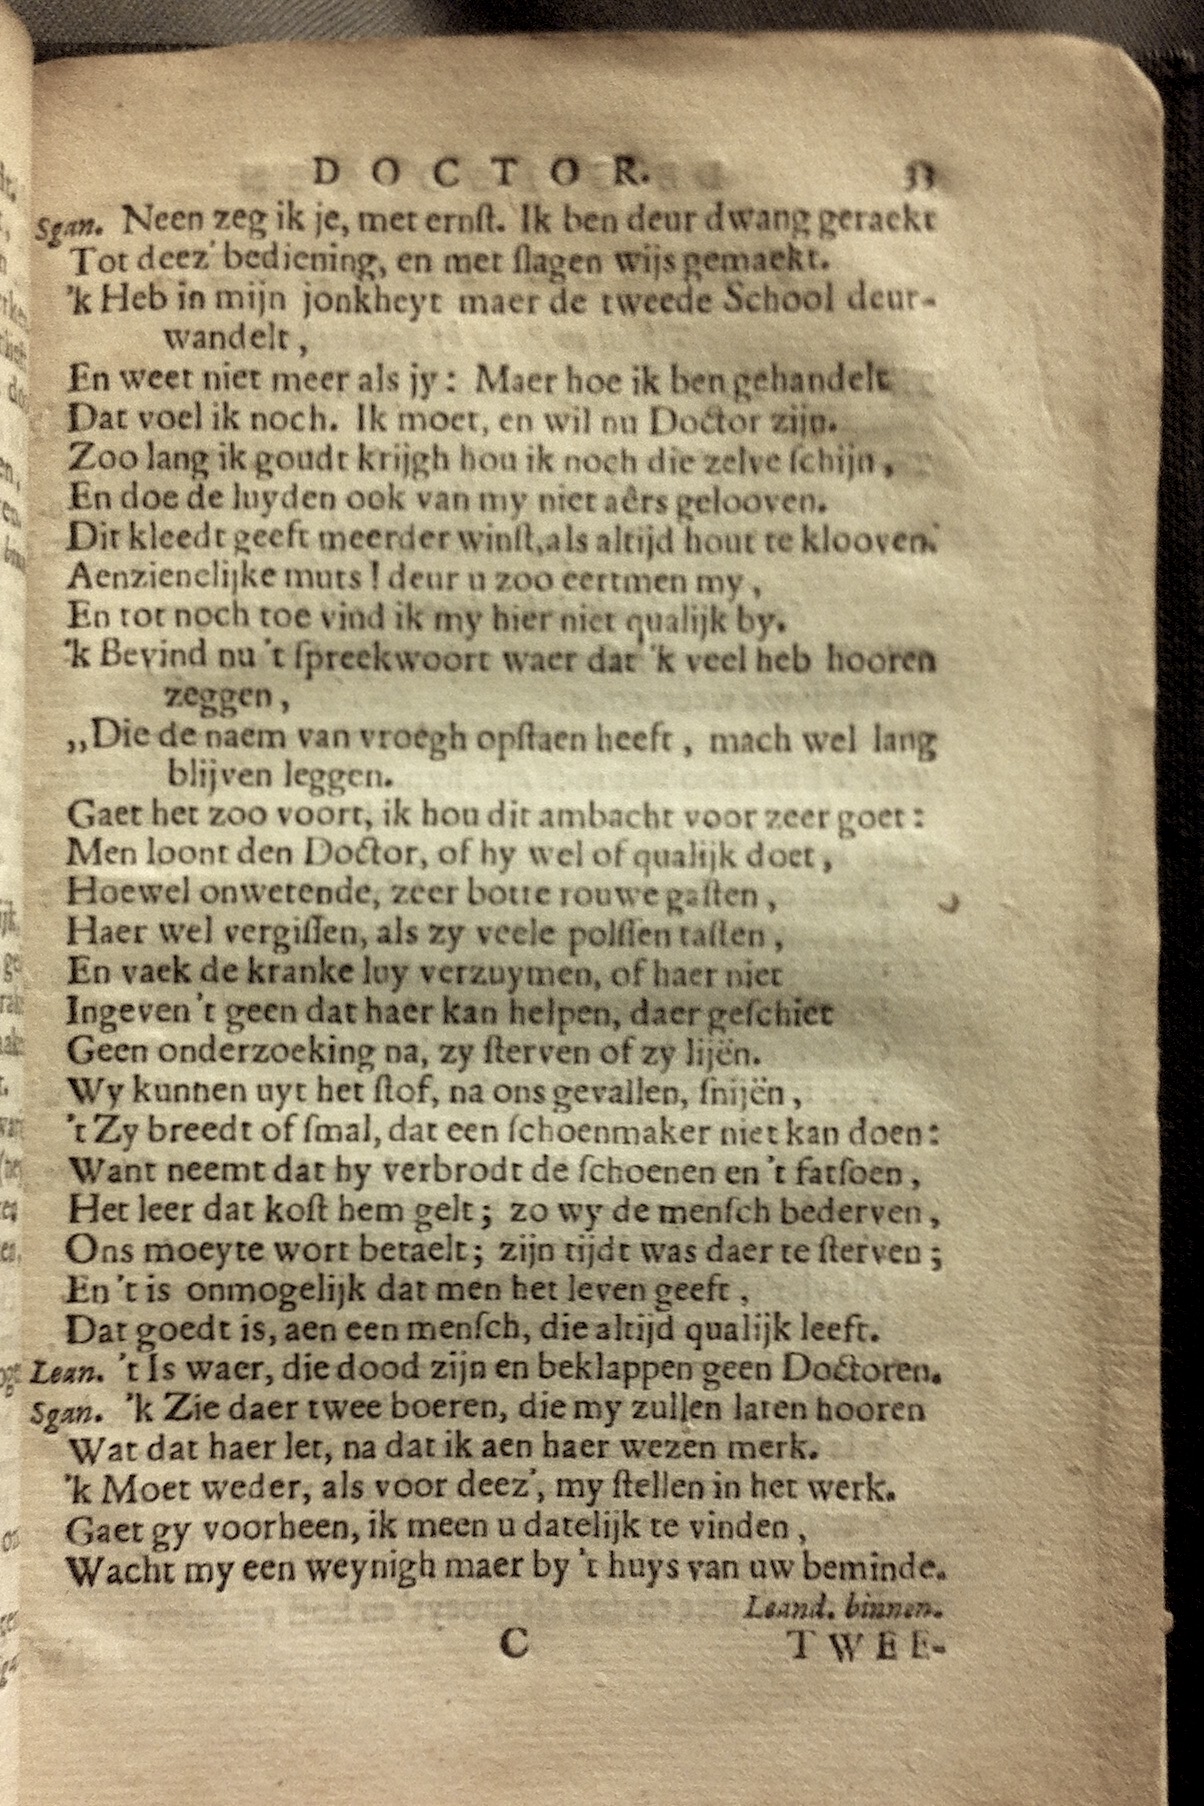 DOCTOR. 33
Sgan. Neen zeg ik je, met ernſt. Ik ben deur dwang geraekt
Tot deez' bediening, en met ſlagen wijs gemaekt.
'k Heb in mijn jonkheyt maer de tweede School deur-
wandelt,
En weet niet meer als jy: Maer hoe ik ben gehandelt
Dat voel ik noch. Ik moet, en wil nu Doctor zijn.
Zoo lang ik goudt krijgh hou ik noch die zelve ſchijn,
En doe de luyden ook van my niet aêrs gelooven.
Dit kleedt geeft meerder winſt, als altijd hout te klooven.
Aenzienclijke muts! deur u zoo eertmen my,
En tot noch toe vind ik my hier niet qualijk by.
'k Bevind nu 't ſpreekwoort waer dat 'k veel heb hooren
zeggen,
,,Die de naem van vroegh opſtaen heeft, mach wel lang
blijven leggen.
Gaet het zoo voort, ik hou dit ambacht voor zeer goet:
Men loont den Doctor, of hy wel of qualijk doet,
Hoewel onwetende, zeer botte rouwe gaſten,
Haer wel vergiſſen, als zy veele polſſen taſten,
En vaek de kranke luy verzuymen, of haer niet
Ingeven 't geen dat haer kan helpen, daer geſchiet
Geen onderzoeking na, zy ſterven of zy lijën.
Wy kunnen uyt het ſtof, na ons gevallen, ſnijën,
't Zy breedt of ſmal, dat een ſchoenmaker niet kan doen:
Want neemt dat hy verbrodt de ſchoenen en 't fatſoen,
Het leer dat koſt hem gelt; zo wy de menſch bederven,
Ons moeyte wort betaelt; zijn tijdt was daer te ſterven;
En 't is onmogelijk dat men het leven geeft,
Dat goedt is, aen een menſch, die altijd qualijk leeft.
Lean. 't Is waer, die dood zijn en beklappen geen Doctoren.
Sgan. 'k Zie daer twee boeren, die my zullen laten hooren
Wat dat haer let, na dat ik aen haer wezen merk.
'k Moet weder, als voor deez', my ſtellen in het werk.
Gaet gy voorheen, ik meen u datelijk te vinden,
Wacht my een weynigh maer by 't huys van uw beminde.
Leand. binnen.
C TWEE-